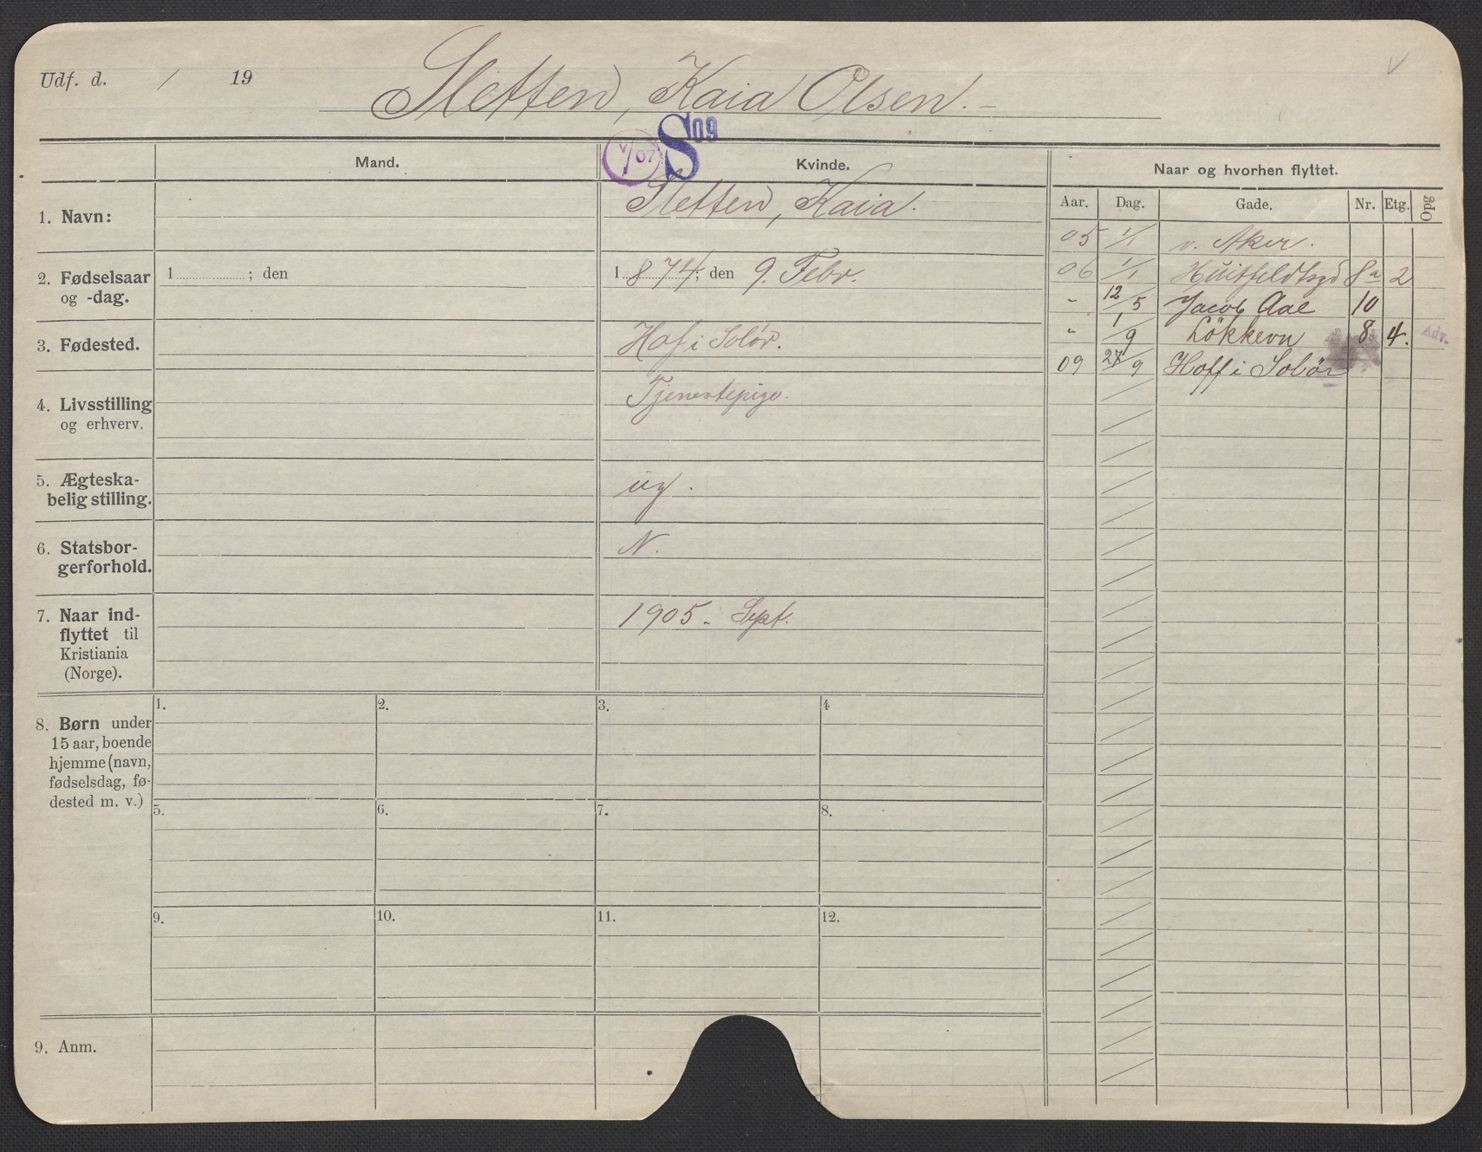 Udf. d. / 19
Sletten, Kaia Olsen.
V/07 S 09
Mand.
Kvinde.
Naar og hvorhen flyttet.
Aar. Dag. Gade. Nr. Etg. Opg
1. Navn:
Sletten, Kaia.
2. Fødselsaar
og -dag.
1 ; den
1874; den 9. Febr.
3. Fødested.
Hof i Solør.
4. Livsstilling
og erhverv.
Tjenestepige.
5. Ægteska-
belig stilling.
ug.
6. Statsbor-
gerforhold.
N.
7. Naar ind-
flyttet til
Kristiania
(Norge).
1905. Sept.
05 1/1 v. Aker.
06 1/1 Huitfeldtsgd 8a 2
" 12/5 Jacob Aal 10
" 1/9 Løkkevn 8 4. Adv.
09 27/9 Hoff i Solør
8. Børn under
15 aar, boende
hjemme (navn,
fødselsdag, fø-
dested m. v.)
1. 2. 3. 4
5. 6. 7. 8.
9. 10. 11. 12.
9. Anm.